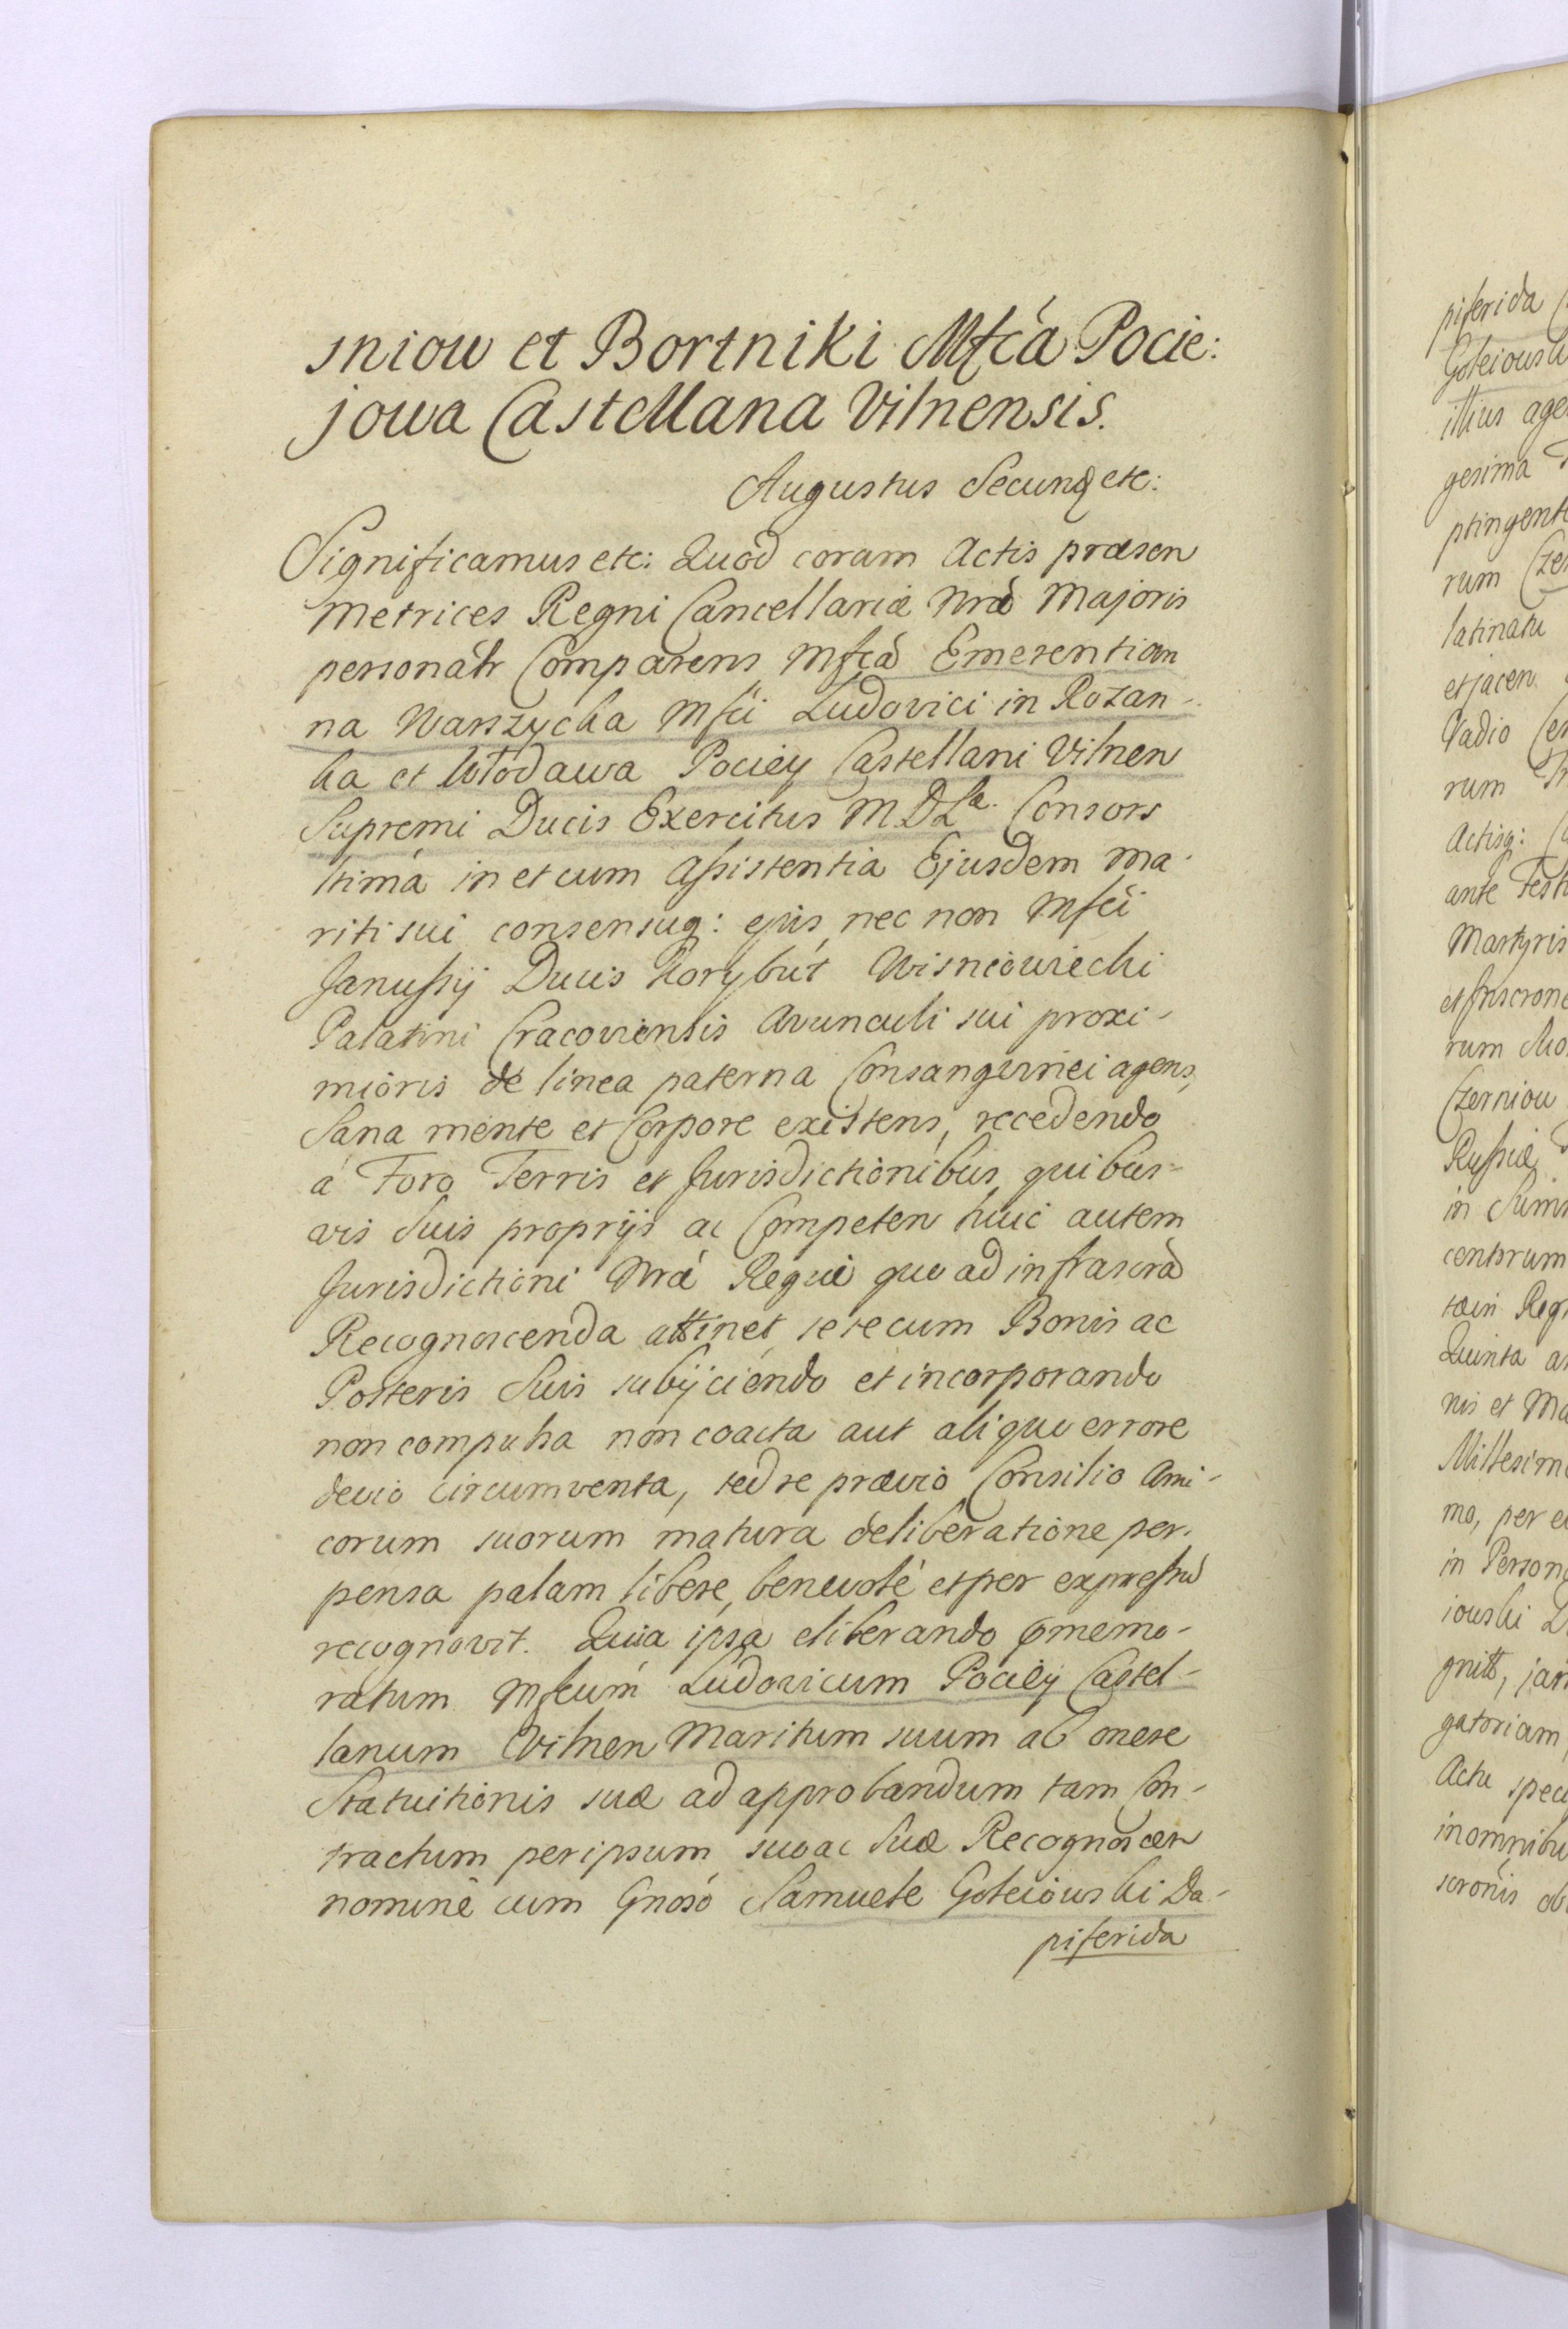 sniow et Bortniki Mfca Pocie:
jowa Castellana Vilnensis.
Augustus Secundg etc:
Significamus etc: Quod coram Actis præsen
Metrices Regni Cancellariæ Nræ Majoris
personalr Comparens Mfca Emerentian
na Warszycka Mfci Ludovici in Rozan-
ka et Włodawa Pociey Castellani Vilnen
Supremi Ducis Exercitus M D La. Consors
ltima in et cum Assistentia Ejusdem Ma-
riti sui consensuq: ejus nec non Mfci
Janussij Ducis Korybut Wisniowiecki
Palatini Cracoviensis Avunculi sui proxi-
mioris de linea paterna Consanguinei agens,
Sana mente et Corpore existens, recedendo
á Foro Terris et Jurisdictionibus quibus-
vis Suis proprijs ac Competen huic autem
Jurisdictioni Nræ Regiæ quo ad infrascra
Recognoscenda attinet, se se cum Bonis ac
Posteris Suis subijciendo et incorporando
non compulsa non coacta aut aliquo errore
devio circumventa, sed se prævio Consilio Ami-
corum suorum matura deliberatione per-
pensa palam libere, benevolé et per expressum
recognovit. Quia ipsa eliberando comemo-
ratum Mfcum Ludovicum Pociey Castel-
lanum Vilnen Maritum suum ab onere
Statuitionis suæ ad approbandum tam Con-
tractum per ipsum suo ac Suæ Recognoscen
nomine cum Gnoso Samuele Goleiowski Da-
piferida
piferida
Goleiowsk
illius age
gesima
ptingente
rum Cze
latinatu
et jacen
Vadio
rum
Actisq:
ante Fest
Martyris
rum
Czerniow
Russiæ
in
Regn
Quinta
nis et Ma
Millesimo
mo, per
in Person
iowski
gatoriam
Actu spec
in omnibu